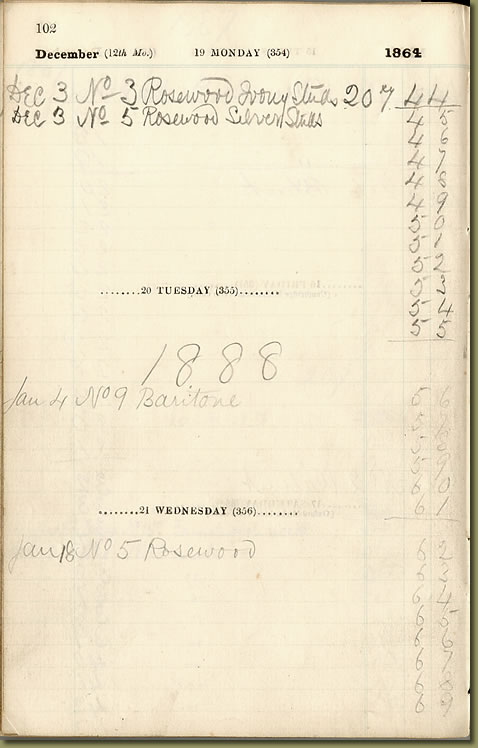 102
December (12th Mo.) 19 MONDAY (354) 1864
DEC 3 No 3 Rosewood Ivory Studs 20 Key 44
DEC 3 No 5 Rosewood Silver Studs 45
46
47
48
49
50
51
52
53
54
55
........20 TUESDAY (355)........
1888
Jan 4 No 9 Baritone 56
57
58
59
60
61
........21 WEDNESDAY (356)........
Jan 18 No 5 Rosewood 62
63
64
65
66
67
68
69